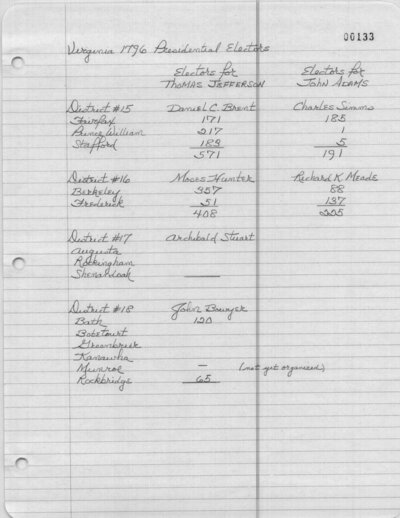 00133
Virginia 1796 Presidential Electors
Electors for Electors for
THOMAS JEFFERSON JOHN ADAMS
District #15 Daniel C. Brent Charles Simms
Fairfax 171 185
Prince William 217 1
Stafford 183 5
571 191
District #16 Moses Hunter Richard K. Meade
Berkeley 357 88
Frederick 51 137
408 225
District #17 Archibald Stuart
Augusta
Rockingham
Shenandoah
District #18 John Bowyer
Bath 120
Botetourt
Greenbrier
Kanawha
Munroe — (not yet organized)
Rockbridge 65